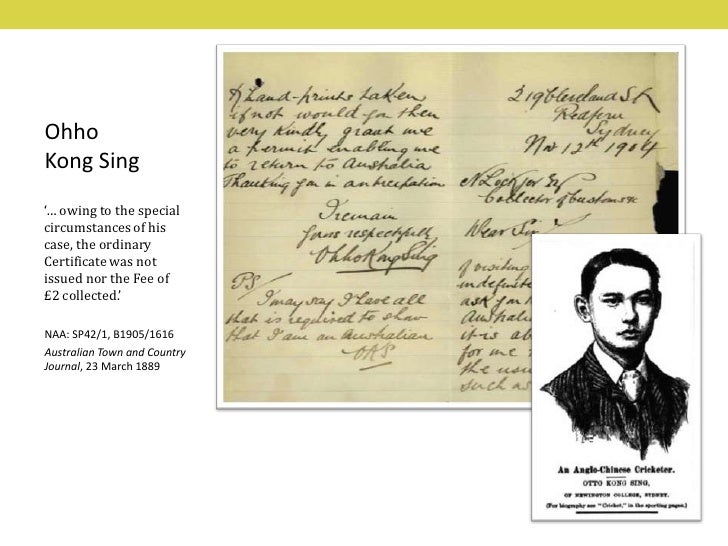 Ohho
Kong Sing
‘… owing to the special
circumstances of his
case, the ordinary
Certificate was not
issued nor the Fee of
£2 collected.’
NAA: SP42/1, B1905/1616
Australian Town and Country
Journal, 23 March 1889
Hand-prints taken
if not would you then
very kindly grant me
a permit enabling me
to return to Australia
Thanking you in anticipation
I remain
Yours respectfully
Ohho Kong Sing
PS/
I may say I have all
that is required to show
that I am an Australian
OKS
219 Cleveland St
Redfern
Sydney
Nov 12th 1904
N Lockyer Esq
Collector of Customs &c
Dear Sir
of visiting
indefinite
ask you
Australia
it is
for me
the usu
such as
An Anglo-Chinese Cricketer.
OTTO KONG SING,
OF NEWINGTON COLLEGE, SYDNEY.
(For biography see "Cricket," in the sporting pages.)